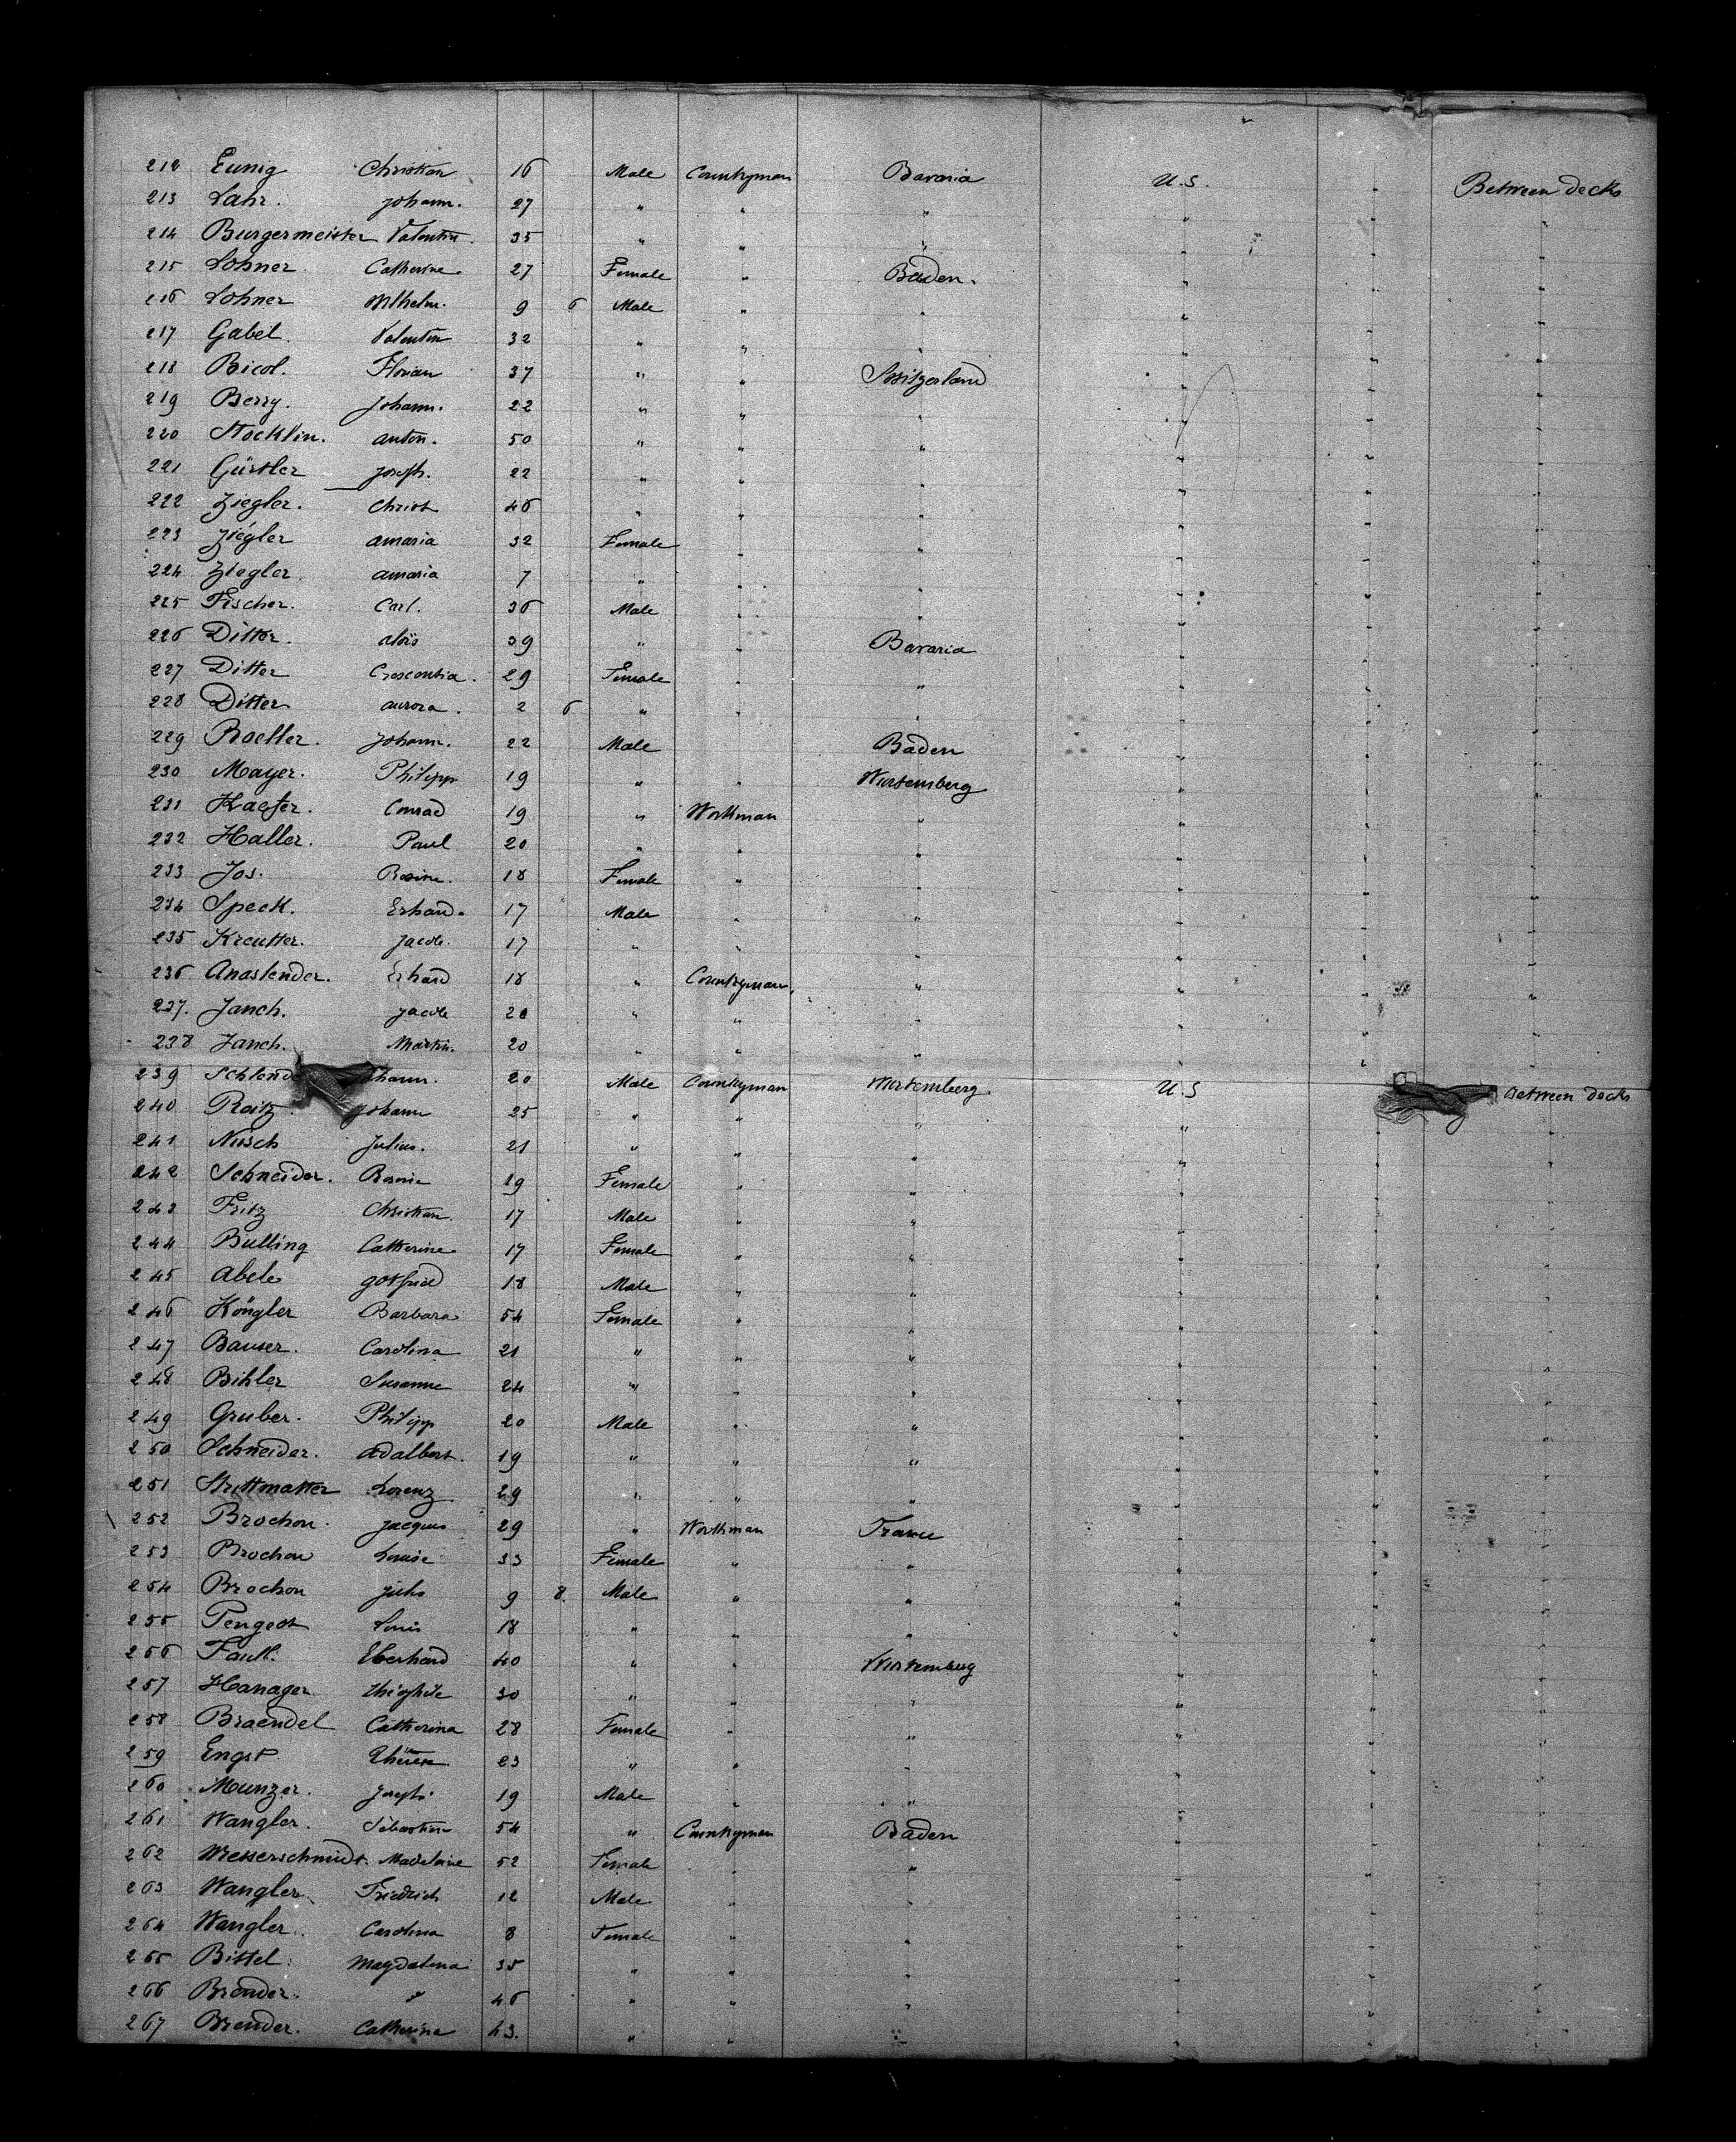 212 Eunig Christian 16 Male Countryman Bavaria U.S. " Between decks
213 Lahr. Johann. 27 " " " " " "
214 Burgermeister Valentin. 35 " " " " " "
215 Lohner Catherine. 27 Female " Baden. " " "
216 Lohner Wilhelm. 9 6 Male " " " " "
217 Gabel. Valentin 32 " " " " " "
218 Bicol. Florian 37 " " Switzerland " " "
219 Berry. Johann. 22 " " " " " "
220 Stocklin. anton. 50 " " " " " "
221 Gürtler Joseph. 22 " " " " " "
222 Ziegler. Christ 46 " " " " " "
223 Ziegler amaria 32 Female " " " " "
224 Ziegler. amaria 7 " " " " " "
225 Fischer. Carl. 36 Male " " " " "
226 Ditter. aloïs 39 " " Bavaria " " "
227 Ditter Crescentia. 29 Female " " " " "
228 Ditter aurora. 2 6 " " " " " "
229 Roeller. Johann. 22 Male Baden " " "
230 Mayer. Philipp 19 " " Wurtemberg " " "
231 Kaefer. Conrad 19 " Workman " " " "
232 Haller. Paul 20 " " " " " "
233 Jos. Rosine. 18 Female " " " " "
234 Speck. Erhard. 17 Male " " " " "
235 Kreutter. Jacob. 17 " " " " " "
236 Anaslender. Erhard 18 " Countryman. " " " "
237. Janch. Jacob 20 " " " " " "
238 Janch. Martin. 20 " " " " " "
239 20 Male Countryman Wurtemberg. U.S Between decks
240 Raitz Johann 25 " " " " " "
241 Nusch Julius. 21 " " " " " "
242 Schneider. Rosine 19 Female " " " " "
243 Fritz Christian 17 Male " " " " "
244 Bulling Catherine 17 Female " " " " "
245 Abele gotfried 18 Male " " " " "
246 Köngler Barbara 54 Female " " " " "
247 Bauser. Carolina 21 " " " " " "
248 Bihler Susanne 24 " " " " " "
249 Gruber. Philipp 20 Male " " " " "
250 Schneider. adalbert. 19 " " " " " "
251 Strittmatter Lorenz 29 " " " " " "
252 Brochon. Jacques 29 " Workman France " " "
253 Brochon Louise 33 Female " " " " "
254 Brochon Jules 9 8. Male " " " " "
255 Peugeot Louis 18 " " " " " "
256 Faull. Eberhard 40 " " Wurtemberg " " "
257 Hanager Théophile 30 " " " " " "
258 Braendel Catherina 28 Female " " " " "
259 Engst Thérèse 23 " " " " " "
260 Munzer. Joseph. 19 Male " " " " "
261 Wangler. Sébastien 54 " Countryman Baden " " "
262 Messerschmidt. Madeleine 52 Female " " " " "
263 Wangler Friedrich 12 Male " " " " "
264 Wangler. Carolina 8 Female " " " " "
265 Bittel. Magdalena 35 " " " " " "
266 Brender. " 46 " " " " " "
267 Brender. Catherina 43. " " " " " "